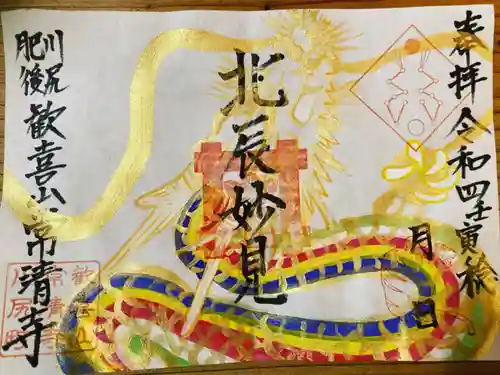 奉拝 令和四壬寅稔
月 日
北辰妙見
川尻
肥後 歓喜山 常清寺